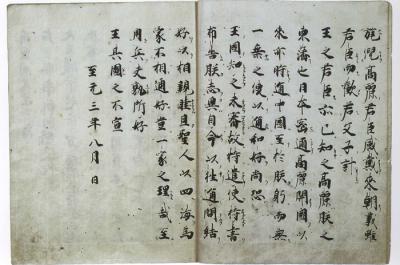 旄倪高麗君臣感戴來朝義雖
君臣而歡若父子計
王之君臣亦已知之高麗朕之
東藩也日本密邇高麗開國以
來亦時通中國至於朕躬而無
一乘之使以通和好尚恐
王國知之未審故特遣使持書
布告朕志冀自今以往通問結
好以相親睦且聖人以四海爲
家不相通好豈一家之理哉至
用兵夫孰所好
王其圖之不宣
至元三年八月日